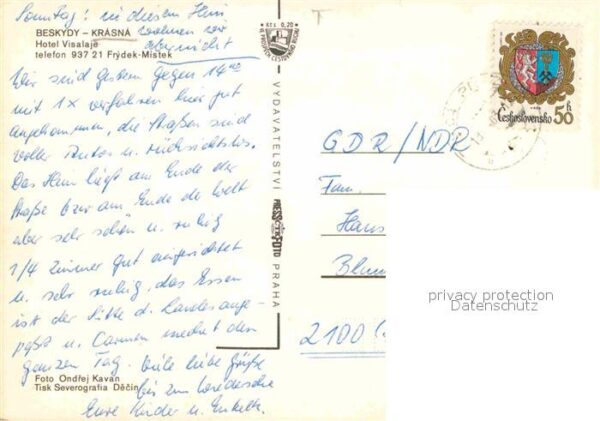 Sonntag: in diesem Heim
wohnen wir
aber nicht
BESKYDY – KRÁSNÁ
Hotel Visalaje
telefon 937 21 Frýdek-Místek
Wir sind gestern gegen 14⁰⁰
mit 1x verfahren hier gut
angekommen, die Straßen sind
voller Autos u. rücksichtslos.
Das Heim liegt am Ende der
Straße bzw am Ende der Welt
aber sehr schön u. ruhig
1/4 Zimmer gut eingerichtet
u. sehr ruhig, das Essen
ist der Sitte d. Landes ange-
paßt u. Carmen den
ganzen Tag. Viele liebe Grüße
bis zum
Eure Kinder u. Enkelk.
Foto Ondřej Kaván
Tisk Severografia Děčín
KčS 0,20
VYDAVATELSTVÍ
PRESSFOTO
PRAHA
Československo
50 h
GDR/NDR
Fam.
Hans
Blum
2100
privacy protection
Datenschutz